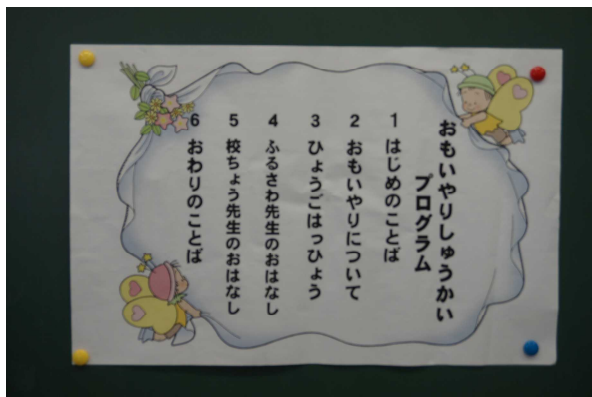 おもいやりしゅうかい
プログラム
1 はじめのことば
2 おもいやりについて
3 ひょうごはっぴょう
4 ふるさわ先生のおはなし
5 校ちょう先生のおはなし
6 おわりのことば